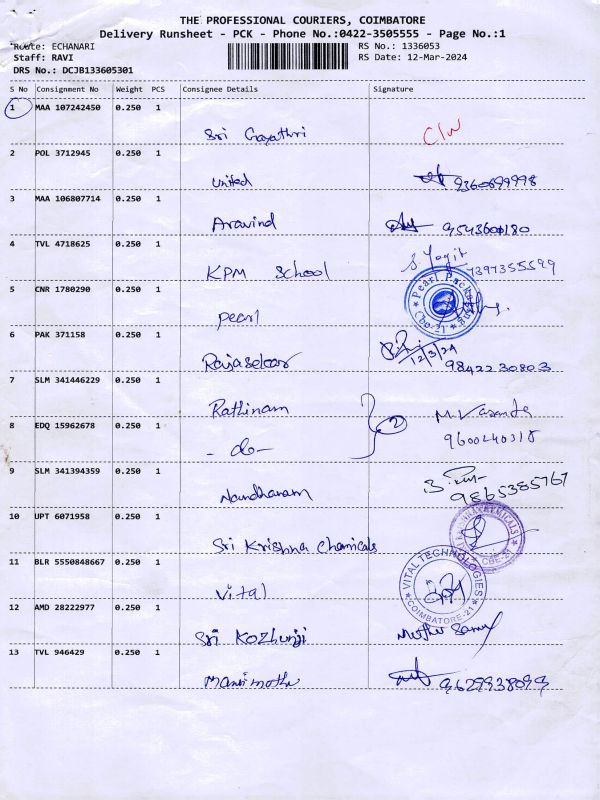 THE PROFESSIONAL COURIERS, COIMBATORE
Delivery Runsheet - PCK - Phone No.:0422-3505555 - Page No.:1
Route: ECHANARI
RS No.: 1336053
Staff: RAVI
RS Date: 12-Mar-2024
DRS No.: DCJB133605301
S No Consignment No Weight PCS Consignee Details Signature
1 MAA 107242450 0.250 1
Sri Gayathri C/W
2 POL 3712945 0.250 1
United 9360699998
3 MAA 106807714 0.250 1
Aravind 9543600180
4 TVL 4718625 0.250 1
KPM School S. Yogit 7397355599
5 CNR 1780290 0.250 1
pearl Pearl Packs Cbe-21
6 PAK 371158 0.250 1
Rajasekar 12/3/24
9842230803
7 SLM 341446229 0.250 1
Rathinam M. Vasantha
8 EDQ 15962678 0.250 1
- do - 2 9600240318
9 SLM 341394359 0.250 1
Nandhanam 9865385767
10 UPT 6071958 0.250 1
Sri Krishna Chemicals CHEMICALS CBE-21
11 BLR 5550848667 0.250 1
Vital VITAL TECHNOLOGIES COIMBATORE-21
12 AMD 28222977 0.250 1
Sri Kozhunji Muthu Samy
13 TVL 946429 0.250 1
9629938099